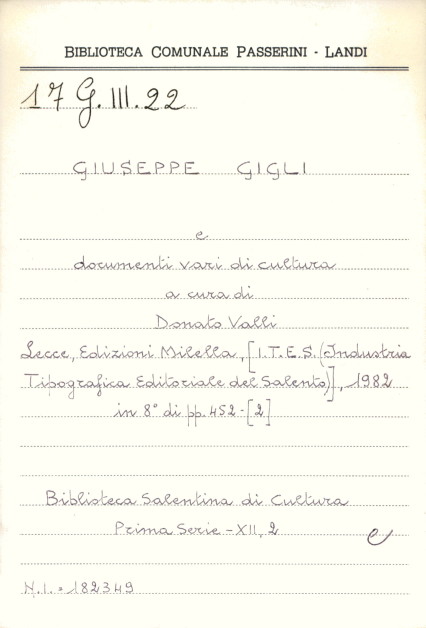 BIBLIOTECA COMUNALE PASSERINI - LANDI
17 G. III. 22
GIUSEPPE GIGLI
e
documenti vari di cultura
a cura di
Donato Valli
Lecce, Edizioni Milella, [I.T.E.S. (Industria
Tipografica Editoriale del Salento)], 1982
in 8° di pp. 452-[2]
Biblioteca Salentina di Cultura
Prima Serie - XII, 2
e
N.I. = 182349